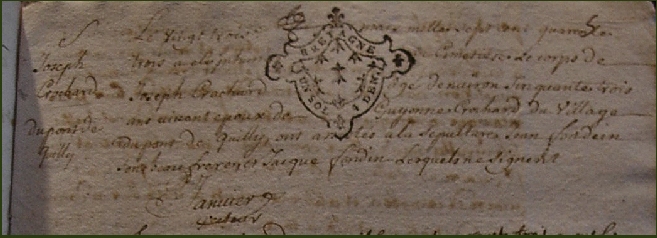 S
Joseph
Crochard
du pont de
Quilly
Le vingt trois mars mille sept cent quarante
trois a ete inhumé cimetiere Le corps de
Joseph Crochard agé denviron Sinquante trois
ans vivant epoux de Guyonne Crohard du Village
du pont de Quilly ont assistés a la Sepulture Jean fondain
Son beau frere et Jacque fondin Lesquels ne Signent
Janvier
recteur
BRETAGNE